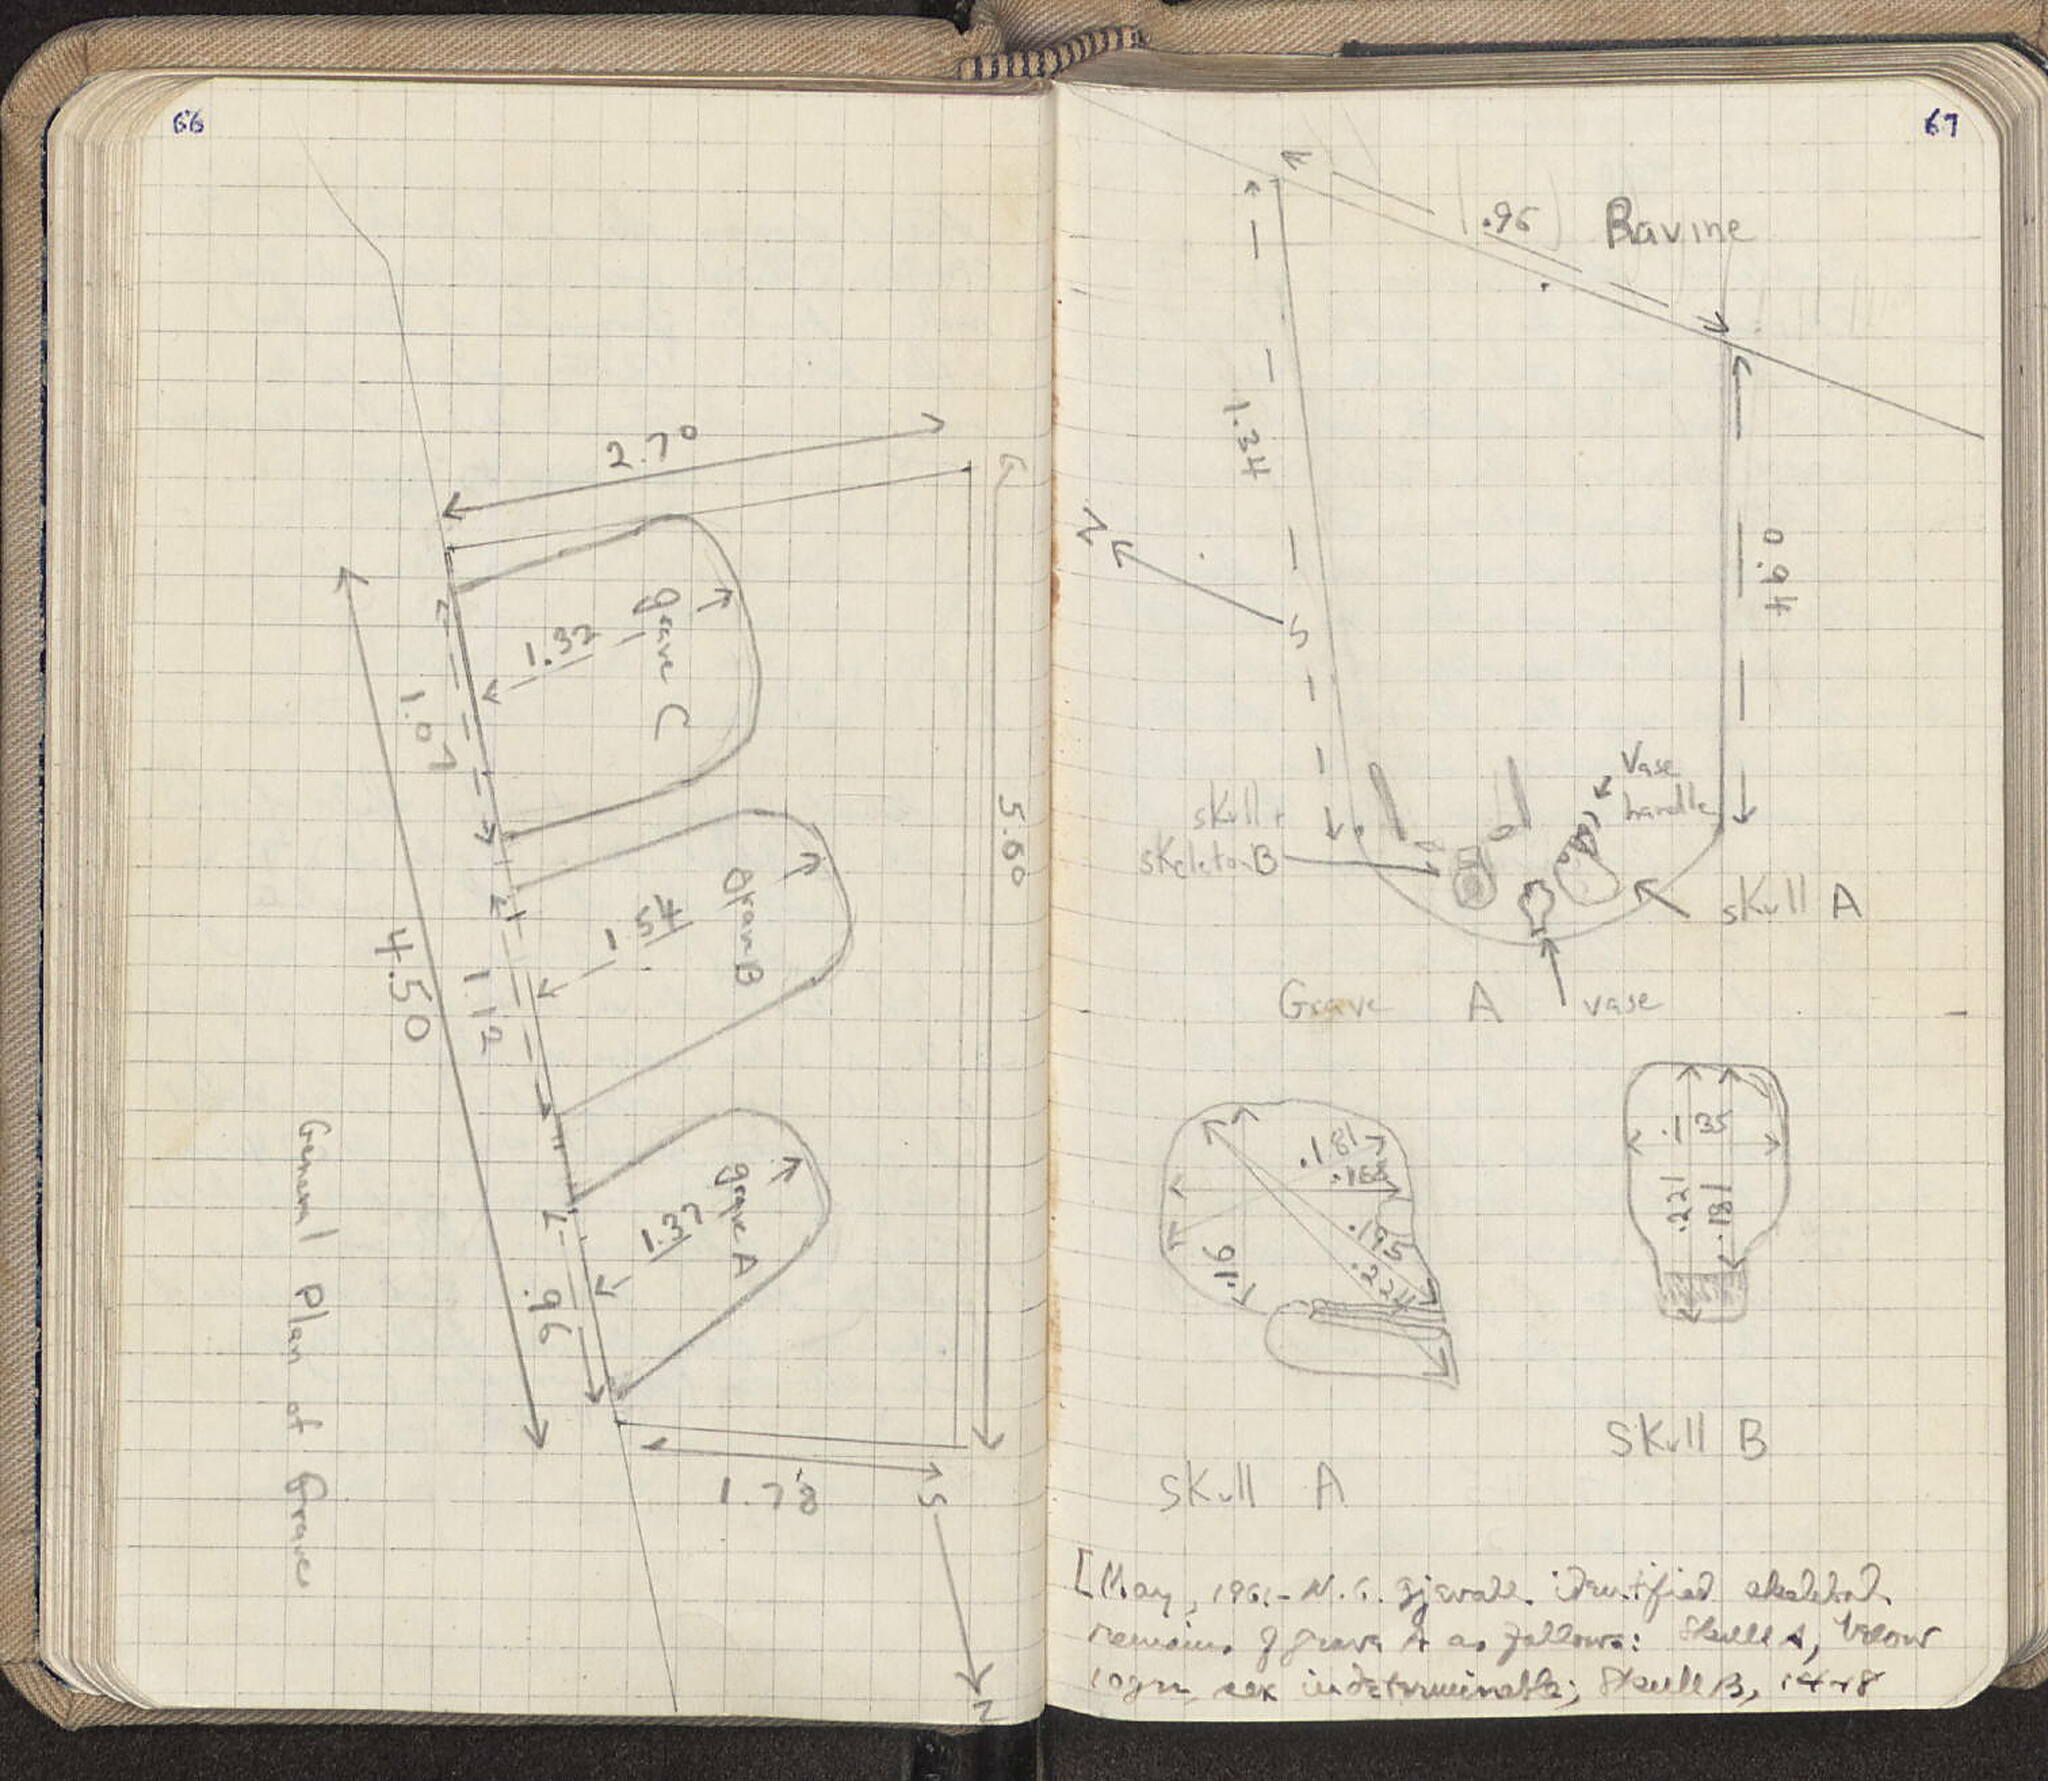 66
2.70
grave C
1.32
1.07
5.60
grave B
1.54
1.12
4.50
grave A
1.37
.96
1.78
S
N
General Plan of Grave
67
.96
Ravine
1.34
0.94
N
S
Vase
handle
skull +
skeleton B
skull A
Grave A
vase
.181
.188
.195
.224
.16
.135
.221
.181
Skull B
Skull A
[May, 1961 - N. G. Gjevall identified skeletal
remains of grave A as follows: Skull A, below
10 yrs, sex indeterminable; Skull B, 14-18